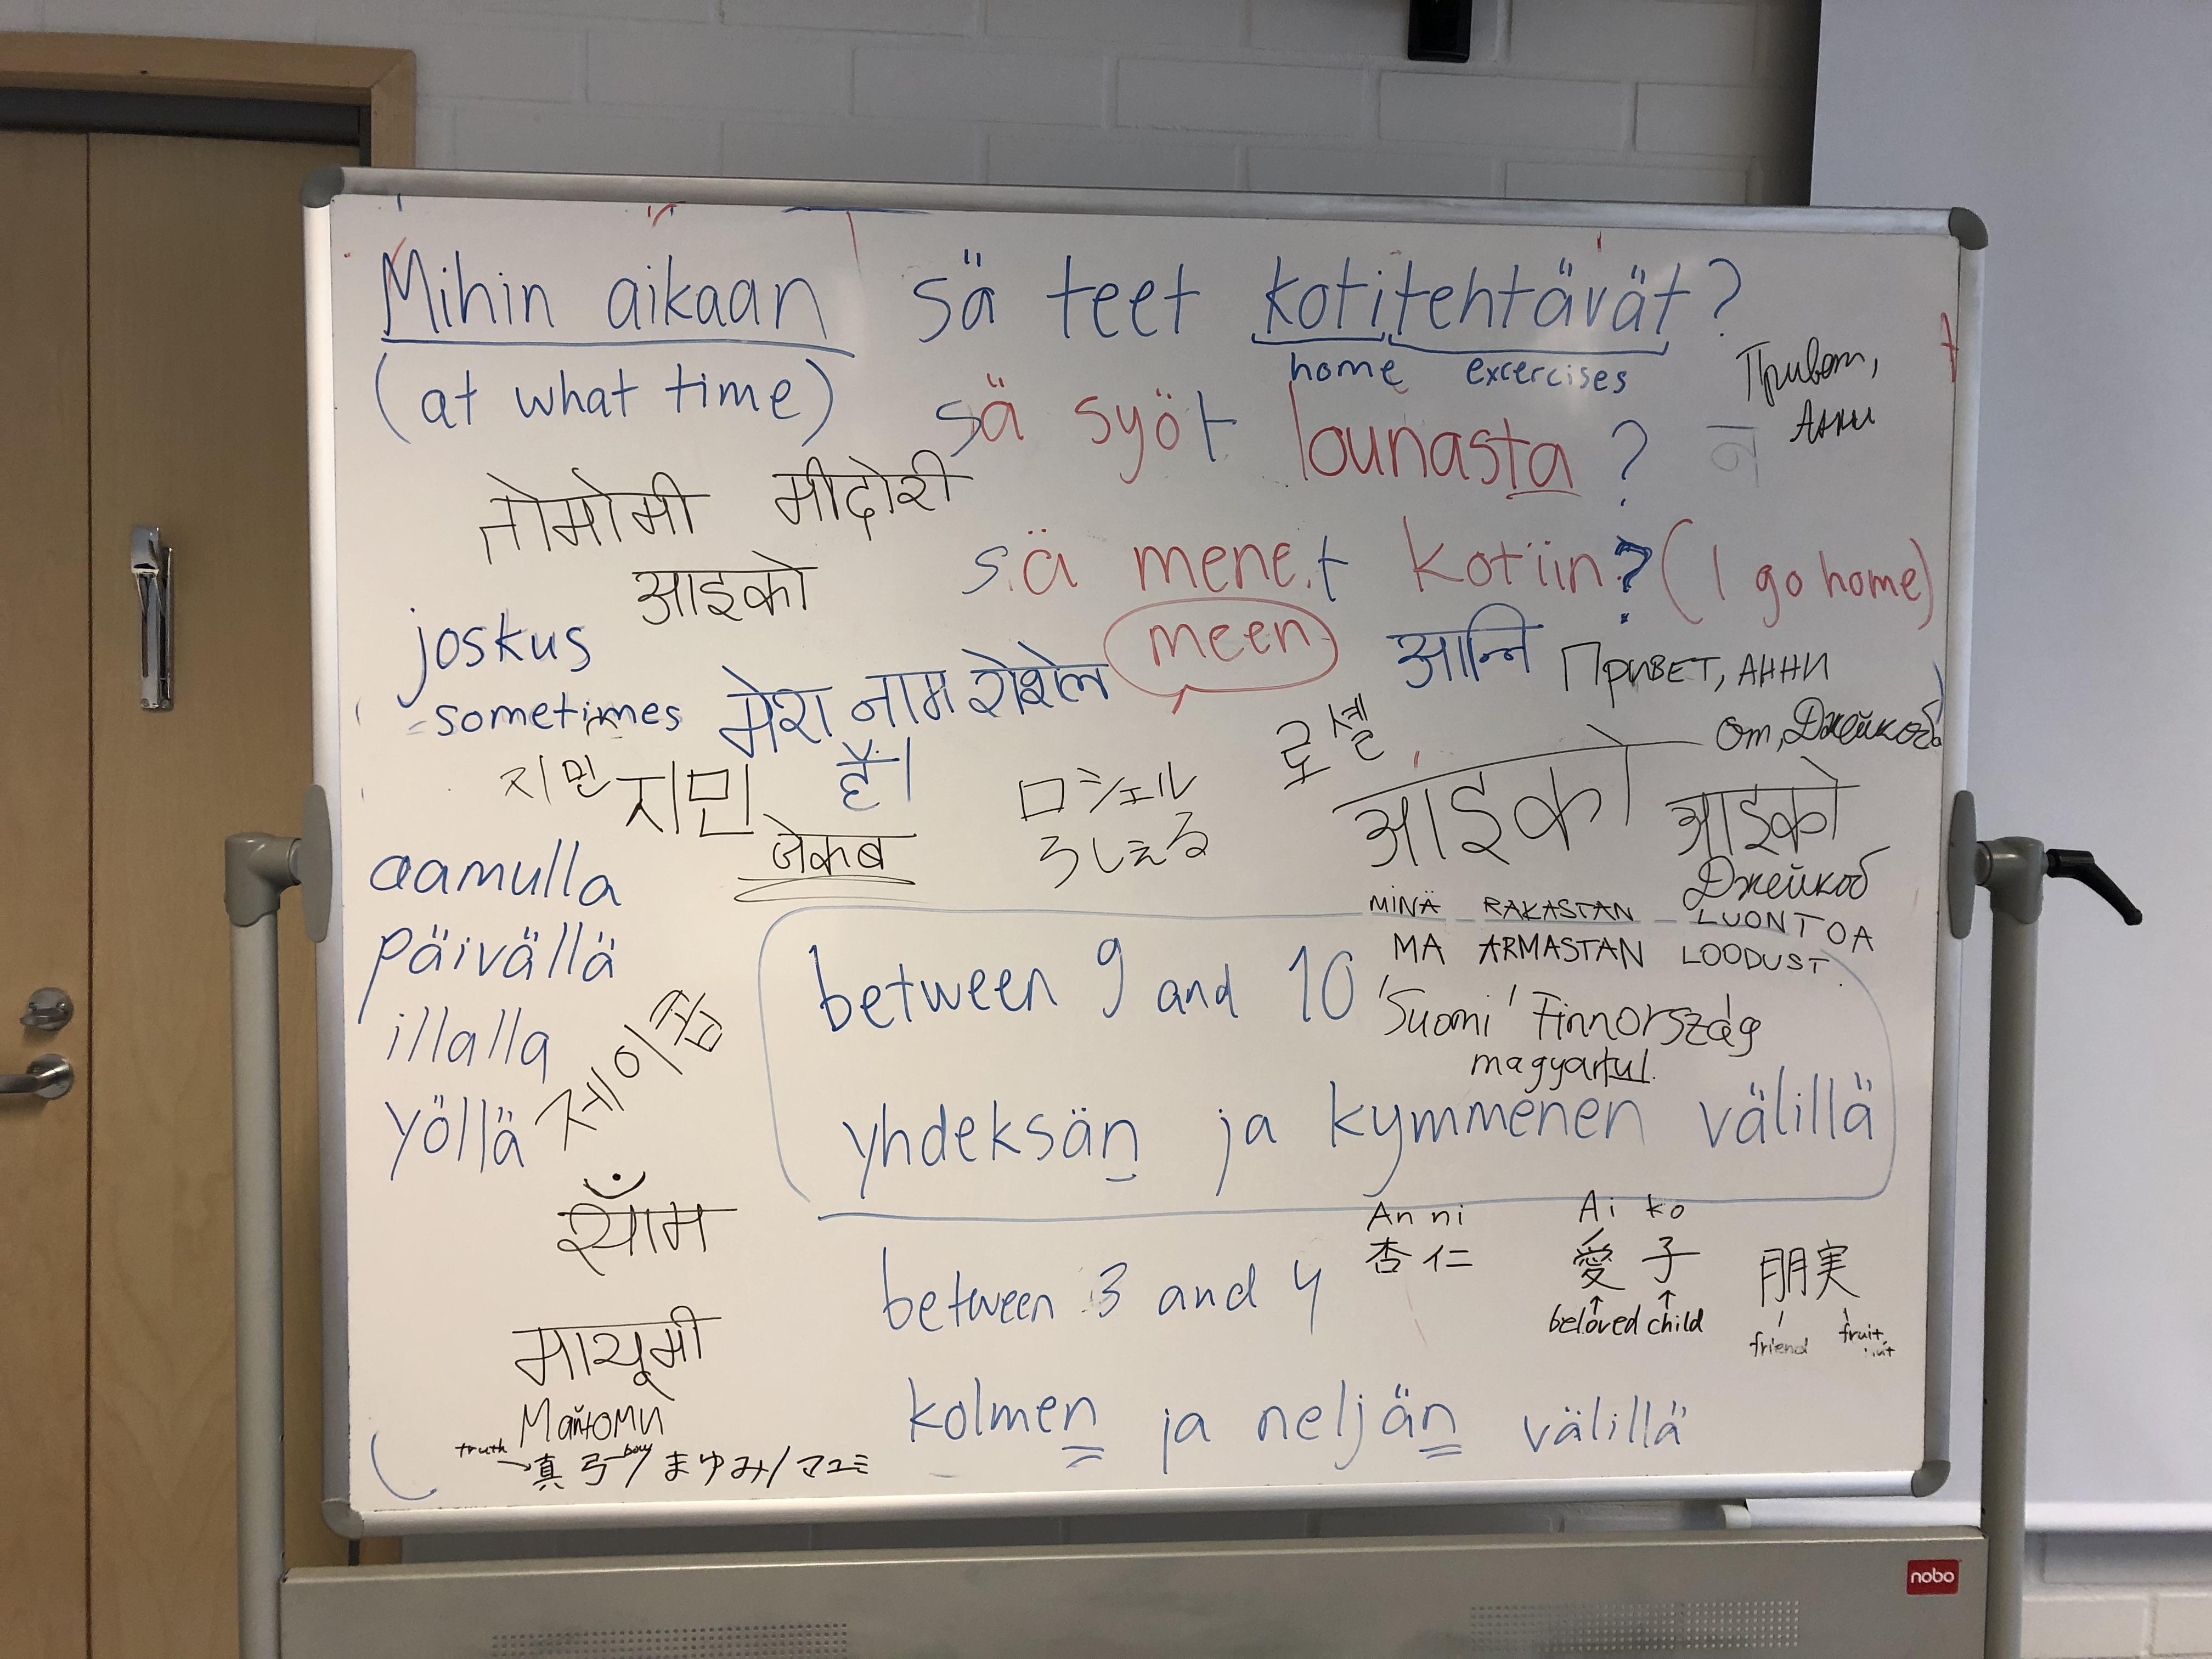 Mihin aikaan sä teet kotitehtävät?
home excercises
(at what time)
Привет,
Анни
sä syöt lounasta ?
तोमोमी मीदोरी
आइको
sä menet kotiin? (I go home)
meen
joskus
= sometimes
मेरा नाम रोशेल
है।
आन्नि
Привет, Анни
От, Джейкоб
로셸
지민 지민
ロシェル
ろしぇる
आइको आइको
जेकब
Джейкоб
aamulla
päivällä
illalla
yöllä
제이콥
MINÄ RAKASTAN LUONTOA
MA ARMASTAN LOODUST
between 9 and 10
'Suomi' Finnország
magyartul.
yhdeksän ja kymmenen välillä
श्याँम
An ni
杏仁
Ai ko
愛子
beloved child
朋実
friend fruit
between 3 and 4
मायूमी
kolmen ja neljän välillä
truth bow
真弓/まゆみ/マユミ
nobo